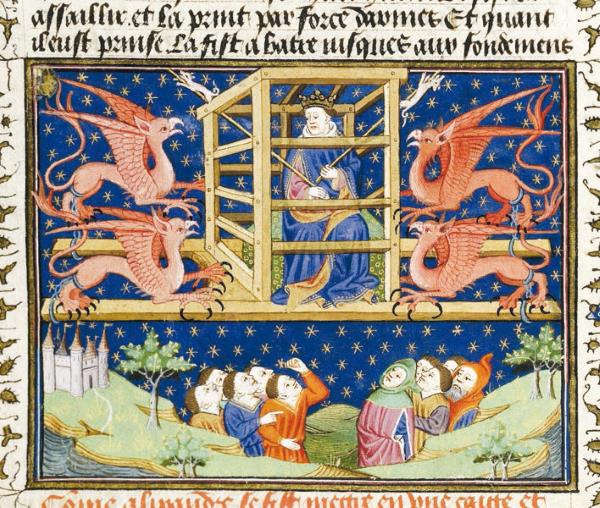 assaillir. et la print par force darmes Et quant
il eust prinse La fist abatre iusques aux fondemens
Come alixandre se fist mettre en vne caige et